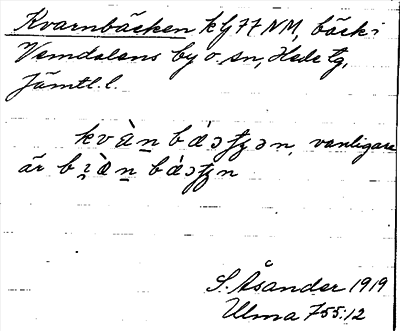 Kvarnbäcken kfJJNM, bäck i
Vemdalens by o. sn, Hede tg,
Jämtl. l.
kvä̀n bǽɔʈʂən, vanligare
är bi̯ä̀n bǽɔʈʂn
S. Åsander 1919
Ulma 755:12